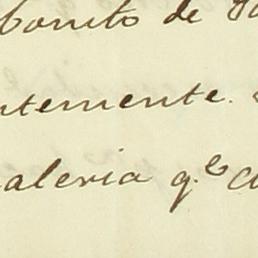 bonito de
ntemente.
aleria q.e